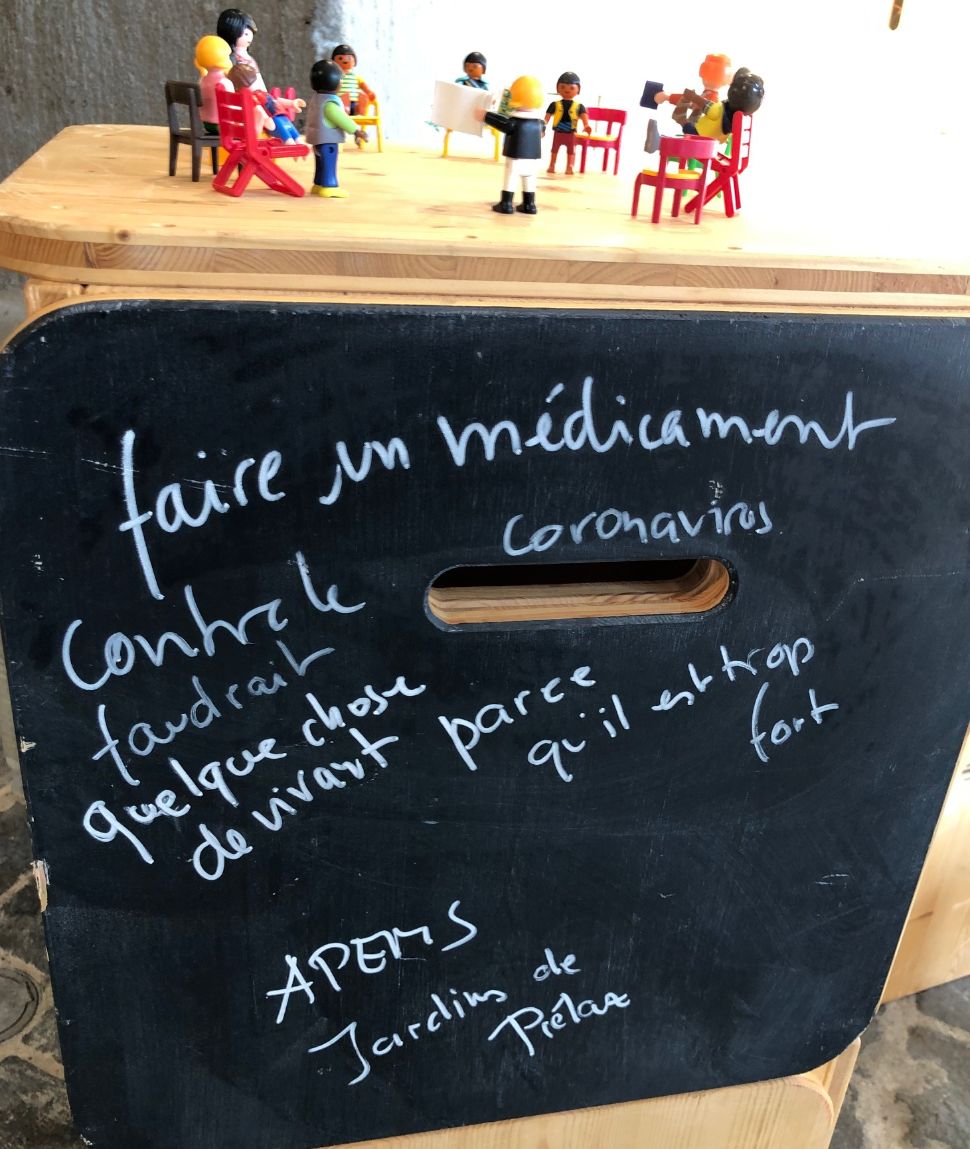 faire un médicament
contre le coronavirus
faudrait
quelque chose
de vivant parce qu'il est trop
fort
APEMS
Jardins de
Prélaz